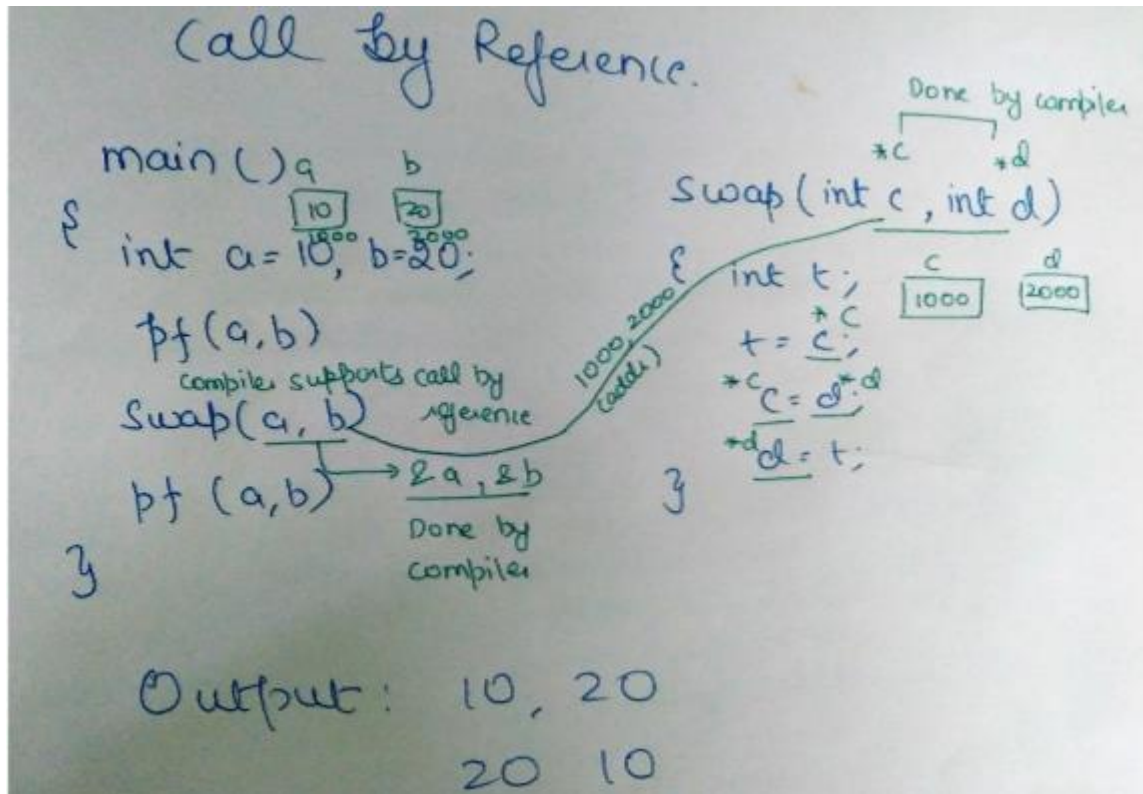 Call by Reference.
main()
a b
10 20
1000 2000
{
int a=10, b=20;
pf(a,b)
compiler supports call by
reference
Swap(a, b)
&a, &b
Done by
compiler
pf (a,b)
}
1000, 2000
(addr)
Done by compiler
*c *d
Swap(int c, int d)
{
int t;
c d
1000 2000
*c
t = c;
*c *d
c = d;
*d
d = t;
}
Output: 10, 20
20 10